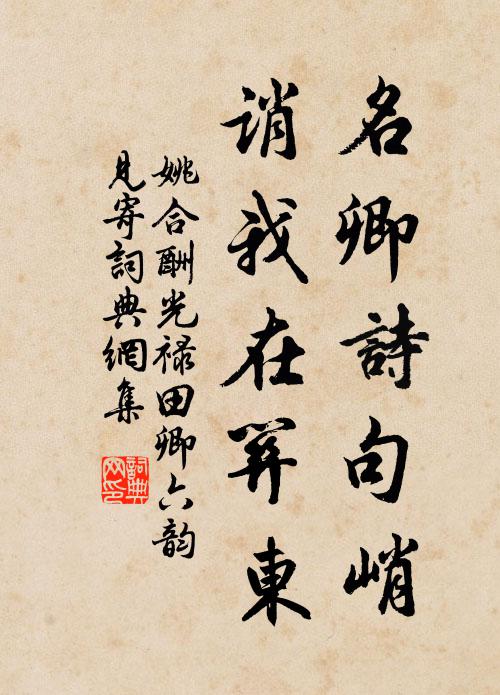 名卿詩句峭
誚我在關東
姚合酬光祿田卿六韵
見寄詞典網集
詞典網印